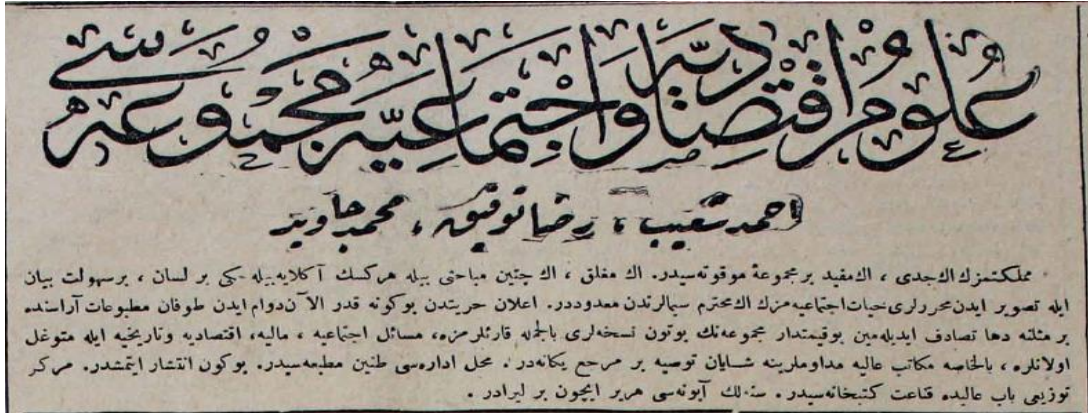 علوم اقتصادیه و اجتماعیه مجموعه سی
احمد شعیب ، رضا توفیق ، محمد جاوید
مملکتمزك اك جدی ، اك مفید بر مجموعۀ موقوته سیدر. اك مغلق ، اك چتین مباحثی بیله هركسك آكلایه بیله جكی بر لسان ، بر سهولت بیان
ایله تصویر ایدن محررلری حیات اجتماعیه مزك اك محترم سیمالرندن معدوددر. اعلان حریتدن بوكونه قدر الآن دوام ایدن طوفان مطبوعات آراسنده
بر مثلنه دها تصادف ایدیله مین بو قیمتدار مجموعه نك بوتون نسخه لری بالجمله قارئلرمزه، مسائل اجتماعیه ، مالیه، اقتصادیه و تاریخیه ایله متوغل
اولانلره ، بالخاصه مكاتب عالیه مداوملرینه شایان توصیه بر مرجع یكانه در. محل اداره سی طنین مطبعه سیدر. بوكون انتشار ایتمشدر. مركز
توزیعی باب عالیده قناعت كتبخانه سیدر. سنه لك آبونه سی هر یر ایچون بر لیرادر .